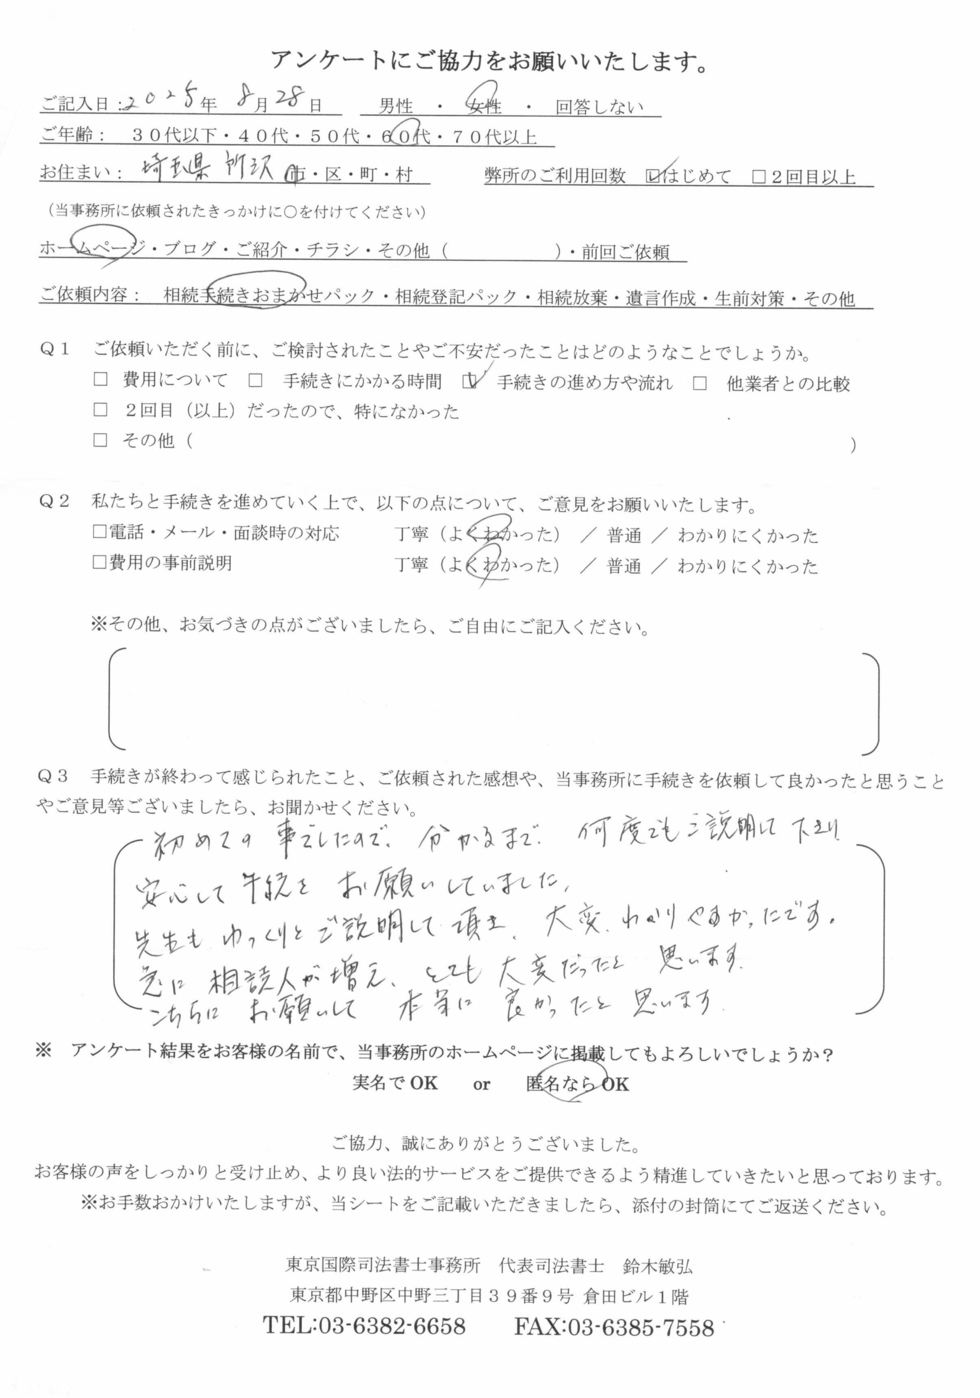 アンケートにご協力をお願いいたします。
ご記入日:2025年 8月28日　男性 ・ 女性 ・ 回答しない
ご年齢： 30代以下・40代・50代・60代・70代以上
お住まい： 埼玉県 所沢 市・区・町・村　弊所のご利用回数 ☑はじめて □2回目以上
（当事務所に依頼されたきっかけに○を付けてください）
ホームページ・ブログ・ご紹介・チラシ・その他（　　　　　）・前回ご依頼
ご依頼内容： 相続手続きおまかせパック・相続登記パック・相続放棄・遺言作成・生前対策・その他
Q1 ご依頼いただく前に、ご検討されたことやご不安だったことはどのようなことでしょうか。
□ 費用について □ 手続きにかかる時間 ☑ 手続きの進め方や流れ □ 他業者との比較
□ 2回目（以上）だったので、特になかった
□ その他（　　　　　）
Q2 私たちと手続きを進めていく上で、以下の点について、ご意見をお願いいたします。
□電話・メール・面談時の対応　丁寧（よくわかった） ／ 普通 ／ わかりにくかった
□費用の事前説明　丁寧（よくわかった） ／ 普通 ／ わかりにくかった
※その他、お気づきの点がございましたら、ご自由にご記入ください。
Q3 手続きが終わって感じられたこと、ご依頼された感想や、当事務所に手続きを依頼して良かったと思うこと
やご意見等ございましたら、お聞かせください。
初めての事でしたので、分かるまで、何度でもご説明して下さり
安心して手続きを お願いしていました。
先生も ゆっくりと ご説明して頂き、大変、わかりやすかったです。
急に 相談人が増え、とても 大変だったと 思います。
こちらに お願いして 本当に 良かったと 思います
※ アンケート結果をお客様の名前で、当事務所のホームページに掲載してもよろしいでしょうか？
実名でOK or 匿名ならOK
ご協力、誠にありがとうございました。
お客様の声をしっかりと受け止め、より良い法的サービスをご提供できるよう精進していきたいと思っております。
※お手数おかけいたしますが、当シートをご記載いただきましたら、添付の封筒にてご返送ください。
東京国際司法書士事務所　代表司法書士　鈴木敏弘
東京都中野区中野三丁目39番9号 倉田ビル1階
TEL:03-6382-6658　FAX:03-6385-7558